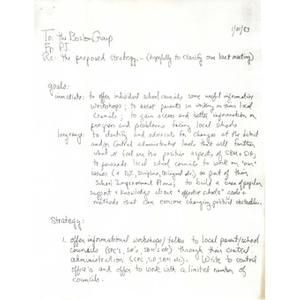 1/21/83
To: the Boston Group
Fr: P.J.
Re: the proposed strategy - (hopefully to clarify our last meeting)
goals:
immediate: to offer individual school councils some useful information
workshops; to assist parents in working on their local
councils; to gain access and better information on
programs and problems facing local schools
longrange: to identify and advocate for changes at the district
and/or Central Administrative levels that will further
what we feel are the positive aspects of
to persuade local school councils to work on "our"
issues (+ discipline, bilingual etc) as part of their
School Improvement Plans; to build a base of popular
support + knowledge about "effective schools" +
methods that can survive changing political
Strategy:
1. offer informational workshops/talks to local parent/school
councils through their central
administration. Write to central
offices and offer to work with a limited number of
councils.